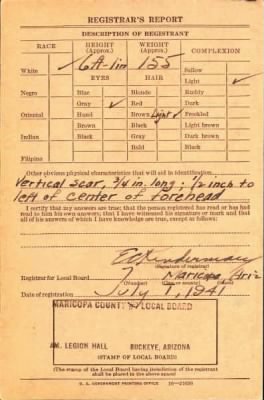 REGISTRAR'S REPORT
DESCRIPTION OF REGISTRANT
RACE HEIGHT (Approx.) WEIGHT (Approx.) COMPLEXION
White ✓ 6ft-1in 155 Sallow
EYES HAIR Light ✓
Negro Blue Blonde Ruddy
Gray ✓ Red Dark
Oriental Hazel Brown Light ✓ Freckled
Brown Black Light brown
Indian Black Gray Dark brown
Bald Black
Filipino
Other obvious physical characteristics that will aid in identification
Vertical scar, 3/4 in. long; 1/2 inch to
left of center of forehead
I certify that my answers are true; that the person registered has read or has had
read to him his own answers; that I have witnessed his signature or mark and that
all of his answers of which I have knowledge are true, except as follows:
(Signature of registrar)
Registrar for Local Board 7 Maricopa Ariz
(Number) (City or county) (State)
Date of registration July 1, 1941
MARICOPA COUNTY LOCAL BOARD
AM. LEGION HALL BUCKEYE, ARIZONA
(STAMP OF LOCAL BOARD)
(The stamp of the Local Board having jurisdiction of the registrant
shall be placed in the above space)
U. S. GOVERNMENT PRINTING OFFICE